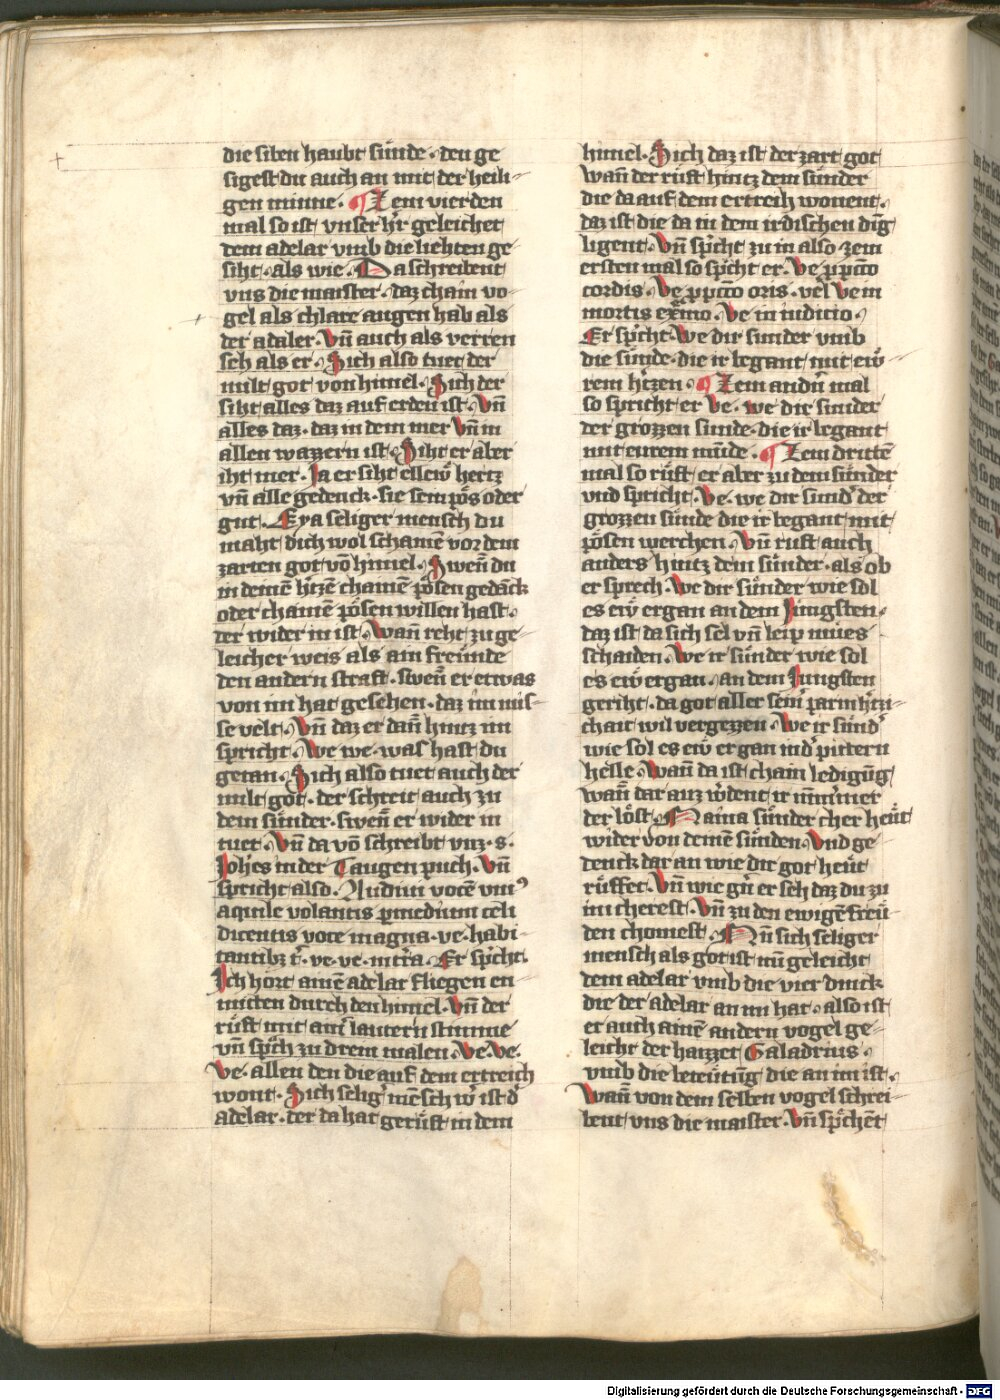 die siben haubt sünde · den ge
sigest du auch an mit der heili-
gen minne · ¶ Zem vierden
mal so ist vnser h'r geleichet
dem adelar vmb die liehten ge
siht · als wie · Da schreibent
vns die maister · daz chain vo-
gel als chlare augen hab als
der adaler · Vn̄ auch als verren
seh als er · Sich also tuet der
milt got von himel · Sich der
siht alles daz auf erden ist · Vn̄
alles daz · daz in dem mer Vn̄ in
allen wazzern ist · Siht er aber
iht mer · Ja er siht ellew hertz
vn̄ alle gedenck · sie sein pös oder
gut · Eya seliger mensch du
maht dich wol schamē vor dem
zarten got vō himel · Swen̄ du
in deinē h'tzē chainē pösen gedāck
oder chainē pösen willen hast ·
der wider in ist · Wan̄ reht zu ge-
leicher weis als ain freünde
den andern straft · swen̄ er etwas
von im hat gesehen · daz im mis-
se velt · Vn̄ daz er dan̄ hintz im
spricht · We we · was hast du
getan · Sich also tuet auch der
milt got · der schreit auch zu
dem sünder · swen̄ er wider in
tuet · Vn̄ da vō schreibt vnz · s ·
Joh̄es in der Taugen puch · Vn̄
spricht also · Audiui vocē vni⁹
aquile volantis p medium celi
dicentis voce magna · ve · habi-
tantibz · ve · ve · in t'ra · Er sp'cht ·
Ich hort ainē adelar fliegen en-
mitten durch den himel · Vn̄ der
rüft mit aim lautern stimme
vn̄ sp'ch zu drein malen · Ve · Ve ·
Ve · allen den die auf dem ertreich
wont · Sich selig' mēsch w' ist d'
adelar · der da hat gerüft in dem
himel · Sich daz ist der zart got
wan̄ der rüft hintz dem sünder
die da auf dem ertreih wonent ·
daz ist die da in dem irdischen ding
ligent · Vn̄ sp'cht zu in also · zem
ersten mal so sp'cht er · Ve p pcc̄to
cordis · Ve p pcc̄to oris · vel Ve in
mortis · Ve in iudicio ·
Er sp'cht · We dir sünder vmb
die sünde · die ir begant mit ew-
rem h'tzen · ¶ Zem andn̄ mal
so spricht er Ve · we dir sünder
der grozzen sunde · die ir begant
mit eurem mūde · ¶ Zem drittē
mal so rüft er aber zu dem sünder
vnd spricht · Ve · we dir sünd' der
grozzen sünde die ir begant mit
pösen werchen · Vn̄ ruft auch
anders hintz dem sünder · als ob
er sprech · We dir sünder wie sol
es ew ergan an dem Jungsten ·
daz ist da sich sel vn̄ leip mues
schaiden · We ir sünder wie sol
es ew ergan · an dem Jungsten
geriht · da got aller seiner parmh'tzi-
chait wil vergezzen · We ir sünd'
wie sol es ew ergan in d' pittern
helle · Wan̄ da ist chain ledigūg
wan̄ dar auz w'dent ir nīmer
der löst · Naina sünder cher heüt
wider von deinē sünden · Vnd ge-
denck dar an wie dir got heüt
rüffet · Vn̄ wie g'n er seh daz du zu
im cherest · Vn̄ zu den ewigē freü-
den chomest · Nu sich seliger
mensch als got ist nū geleicht
dem adelar vmb die vier dinck
die der adelar an im hat · also ist
er auch ainē andern vogel ge-
leicht der haizzet Galadrius ·
vmb die beteütūg die an im ist ·
Wan̄ von dem selben vogel schrei-
bent vns die maister · Vn̄ sp'chēt
Digitalisierung gefördert durch die Deutsche Forschungsgemeinschaft - DFG